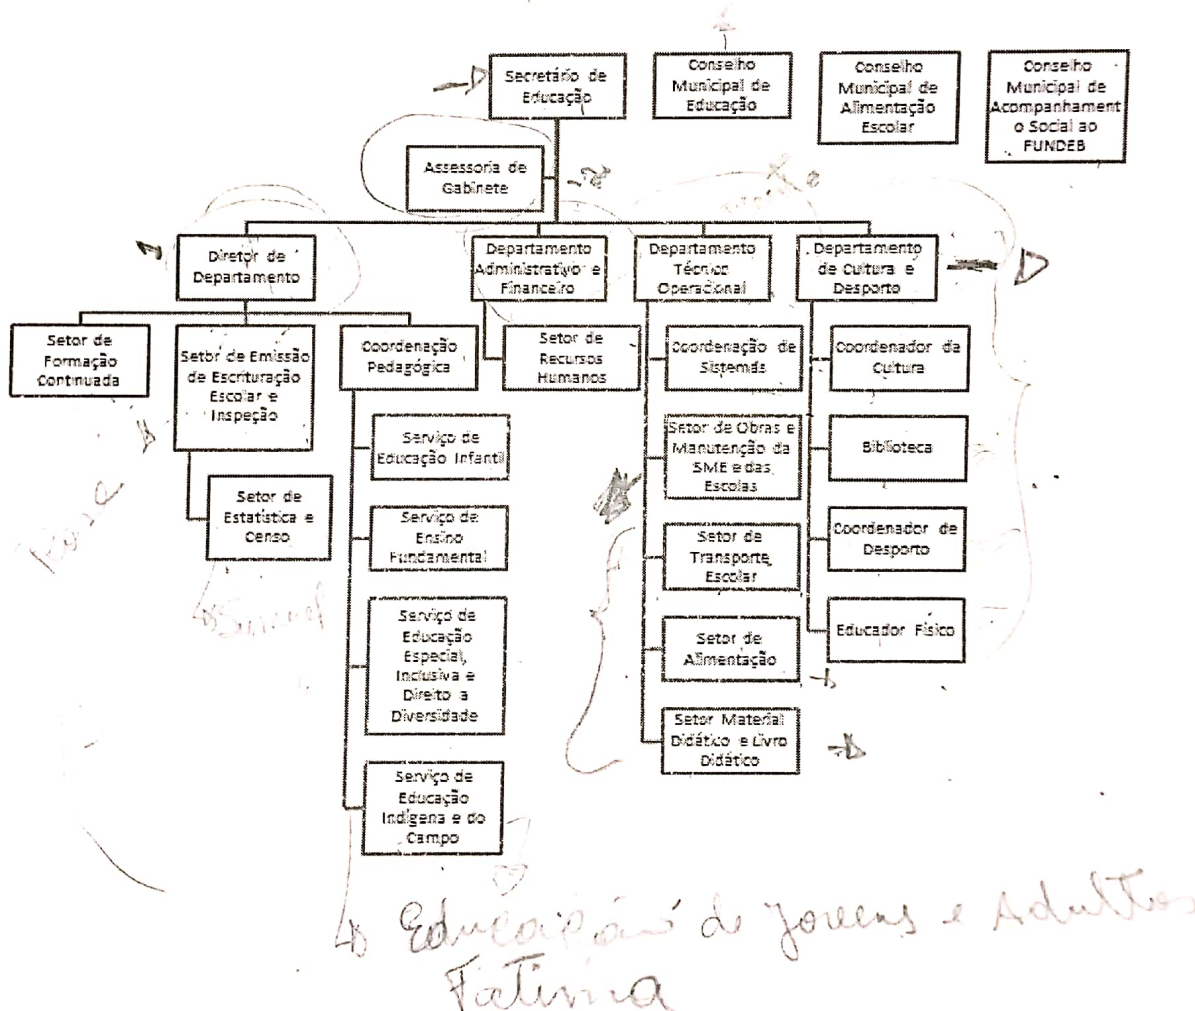 Secretário de
Educação
Conselho
Municipal de
Educação
Conselho
Municipal de
Alimentação
Escolar
Conselho
Municipal de
Acompanhament
o Social ao
FUNDEB
Assessoria de
Gabinete
Diretor de
Departamento
Departamento
Administrativo e
Financeiro
Departamento
Técnico
Operacional
Departamento
de Cultura e
Desporto
Setor de
Formação
Continuada
Setor de Emissão
de Escrituração
Escolar e
Inspeção
Setor de
Estatística e
Censo
Coordenação
Pedagógica
Serviço de
Educação Infantil
Serviço de
Ensino
Fundamental
Serviço de
Educação
Especial,
Inclusiva e
Direito a
Diversidade
Serviço de
Educação
Indígena e do
Campo
Setor de
Recursos
Humanos
Coordenação de
Sistemas
Setor de Obras e
Manutenção da
SME e das
Escolas
Setor de
Transporte
Escolar
Setor de
Alimentação
Setor Material
Didático e Livro
Didático
Coordenador da
Cultura
Biblioteca
Coordenador de
Desporto
Educador Físico
Educação de Jovens e Adultos
Fatima